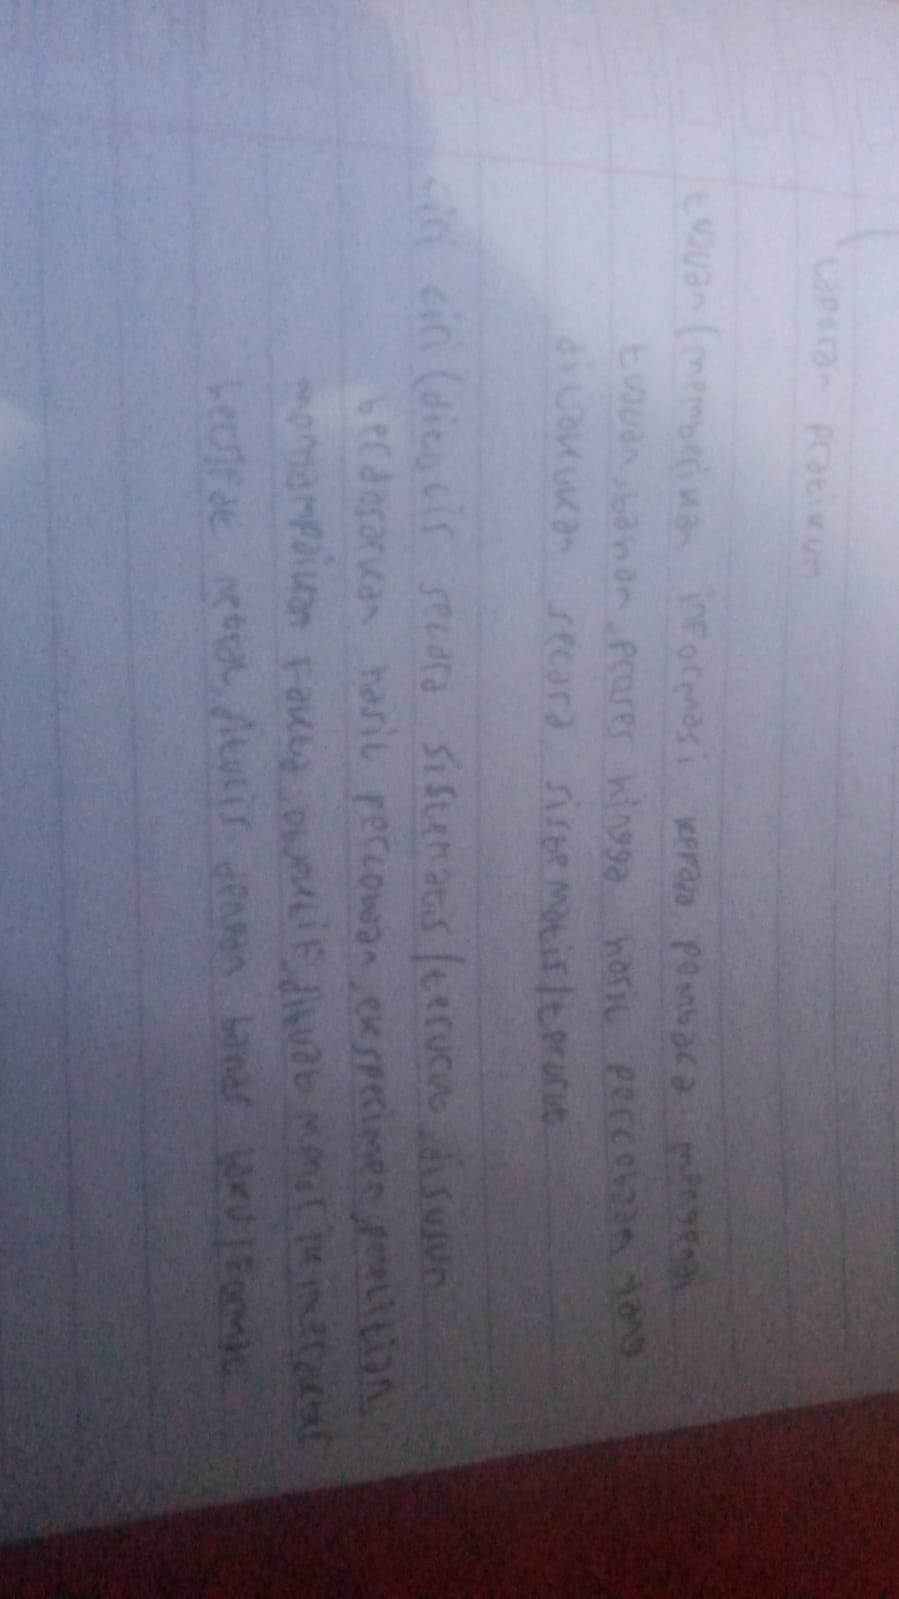 Laporan pratikum
tujuan (memberikan informasi kepada pembaca mengenai
tujuan, bahan, proses hingga hasil percobaan yang
dilakukan secara sistematis/terurut
ciri ciri (ditulis secara sistematis/terurut, disusun
berdasarkan hasil percobaan, eksperimen, penelitian,
menampilkan fakta, objektif,
bersifat netral, ditulis dengan bahasa baku/formal